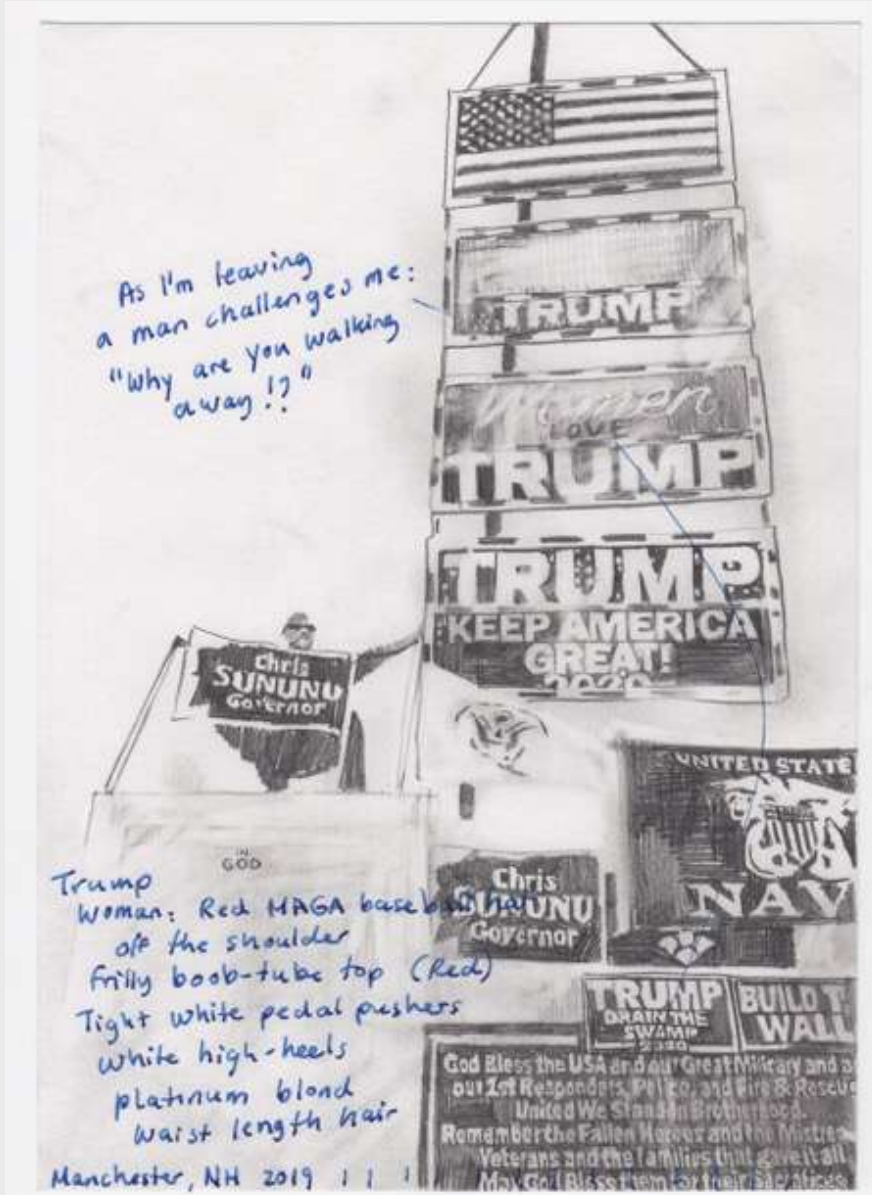 As I'm leaving
a man challenges me:
"Why are you walking
away!?"
TRUMP
Women
LOVE
TRUMP
TRUMP
KEEP AMERICA
GREAT!
2020
Chris
SUNUNU
Governor
UNITED STATE
NAV
IN
GOD
Chris
SUNUNU
Governor
TRUMP
DRAIN THE
SWAMP
2020
BUILD T
WALL
God Bless the USA and our Great Military and
our 1st Responders, Police, and Fire & Rescue
United We Stand In Brotherhood.
Remember the Fallen Heroes and the
Veterans and the families that gave it all
May God Bless them for their Sacrifices
Trump
Woman: Red MAGA baseball hat
off the shoulder
frilly boob-tube top (Red)
Tight white pedal pushers
white high-heels
platinum blond
waist length hair
Manchester, NH 2019